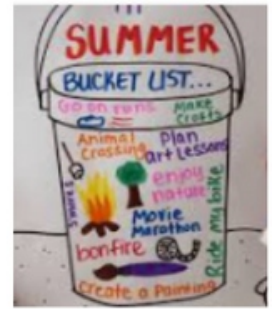 SUMMER
BUCKET LIST...
Go on runs
Make
Crafts
Animal
Crossing
Plan
art Lessons
S'mores
enjoy
nature
Movie
Marathon
Ride my bike
bonfire
create a Painting